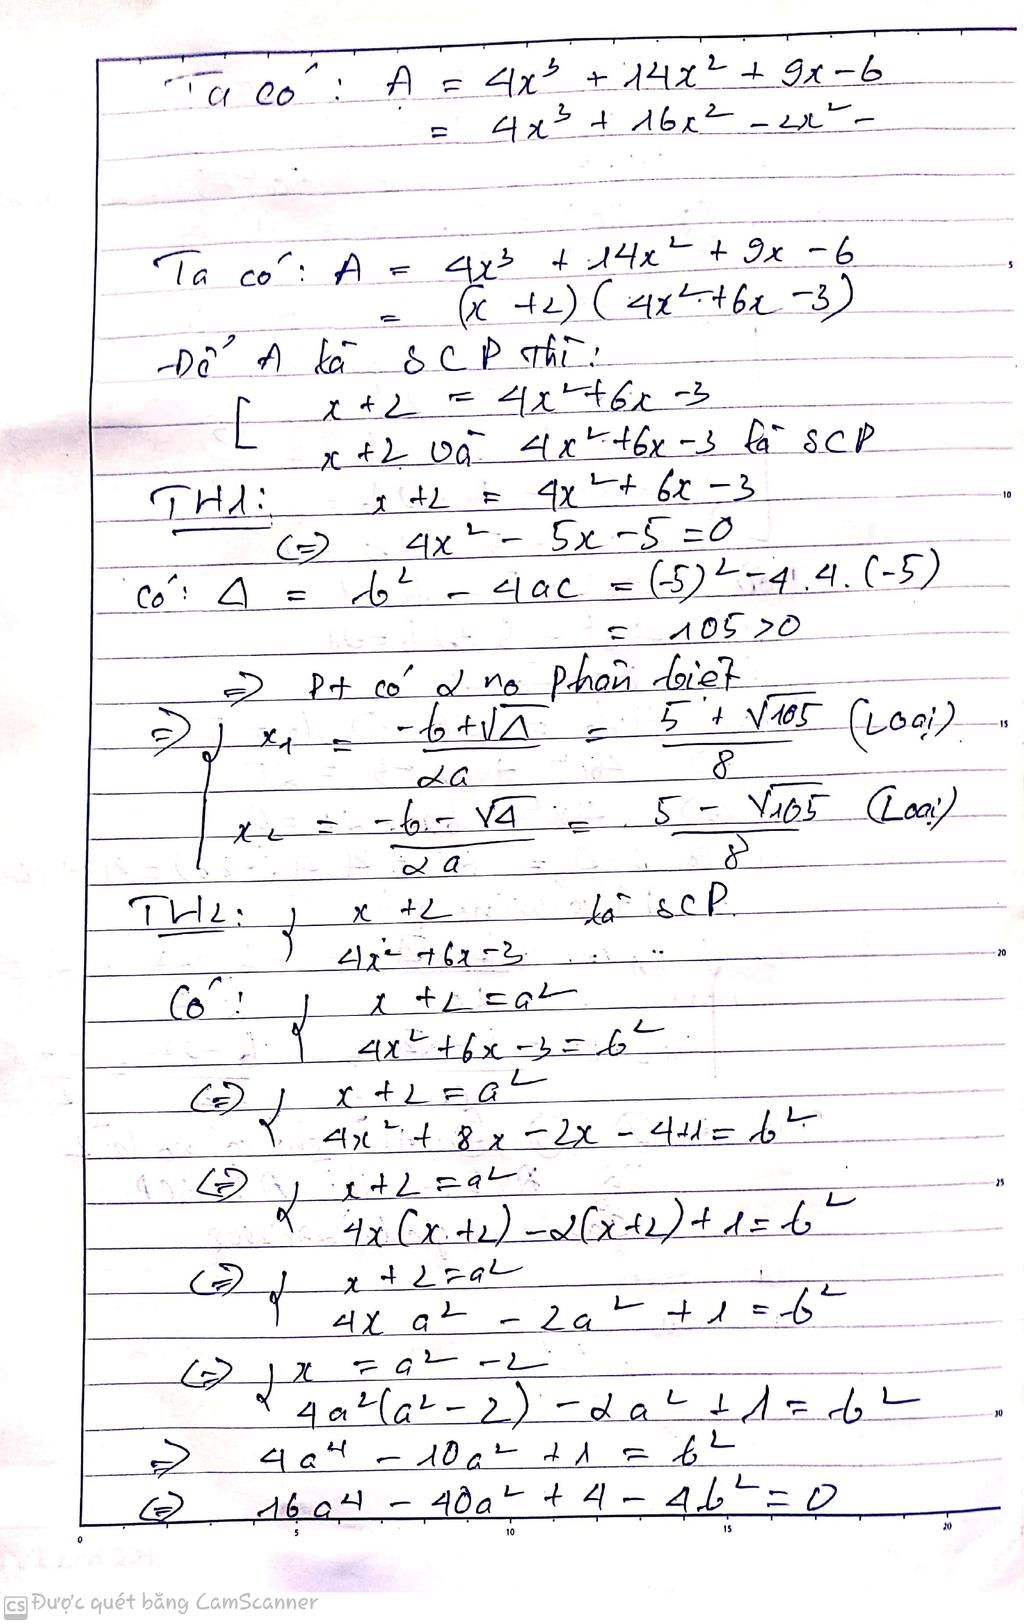 Ta có: A = 4x³ + 14x² + 9x - 6
= 4x³ + 16x² - 2x² -
Ta có: A = 4x³ + 14x² + 9x - 6
= (x + 2)(4x² + 6x - 3)
Để A là SCP thì:
[ x + 2 = 4x² + 6x - 3
x + 2 và 4x² + 6x - 3 là SCP
TH1: x + 2 = 4x² + 6x - 3
(=) 4x² - 5x - 5 = 0
Có: Δ = b² - 4ac = (-5)² - 4.4.(-5)
= 105 > 0
=> Pt có 2 no phân biệt
=> { x₁ = (-b + √Δ)/2a = (5 + √105)/8 (Loại)
x₂ = (-b - √Δ)/2a = (5 - √105)/8 (Loại)
TH2: { x + 2 là SCP.
4x² + 6x - 3 .. ..
Có: { x + 2 = a²
4x² + 6x - 3 = b²
(=) { x + 2 = a²
4x² + 8x - 2x - 4 + 1 = b²
(=) { x + 2 = a²
4x(x + 2) - 2(x + 2) + 1 = b²
(=) { x + 2 = a²
4x a² - 2a² + 1 = b²
(=) { x = a² - 2
4a²(a² - 2) - 2a² + 1 = b²
=> 4a⁴ - 10a² + 1 = b²
(=) 16a⁴ - 40a² + 4 - 4b² = 0
5
10
15
20
25
30
0 5 10 15 20
CS Được quét bằng CamScanner